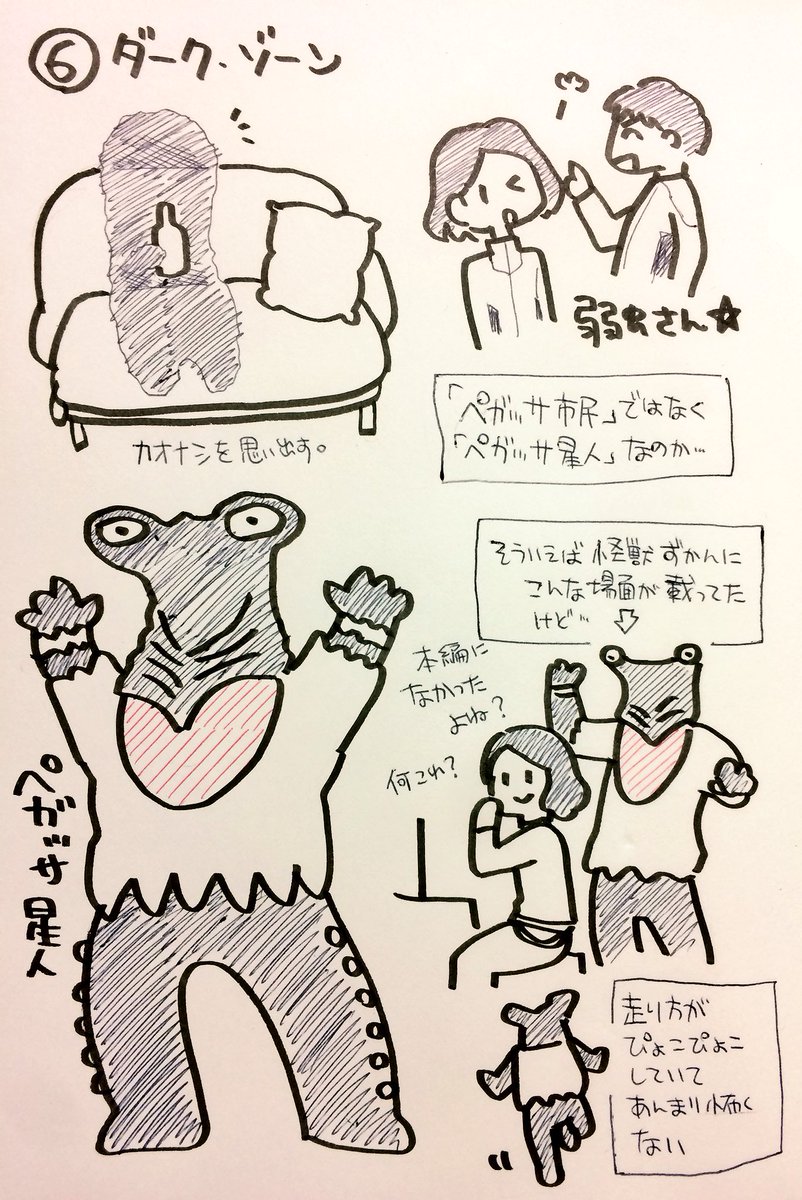 ⑥ダーク・ゾーン
弱虫さん☆
カオナシを思い出す。
「ペガッサ市民」ではなく
「ペガッサ星人」なのか…
そういえば怪獣ずかんに
こんな場面が載ってた
けど…⇩
本編に
なかった
よね?
何これ?
ペガッサ星人
走り方が
ぴょこぴょこ
していて
あんまり怖く
ない